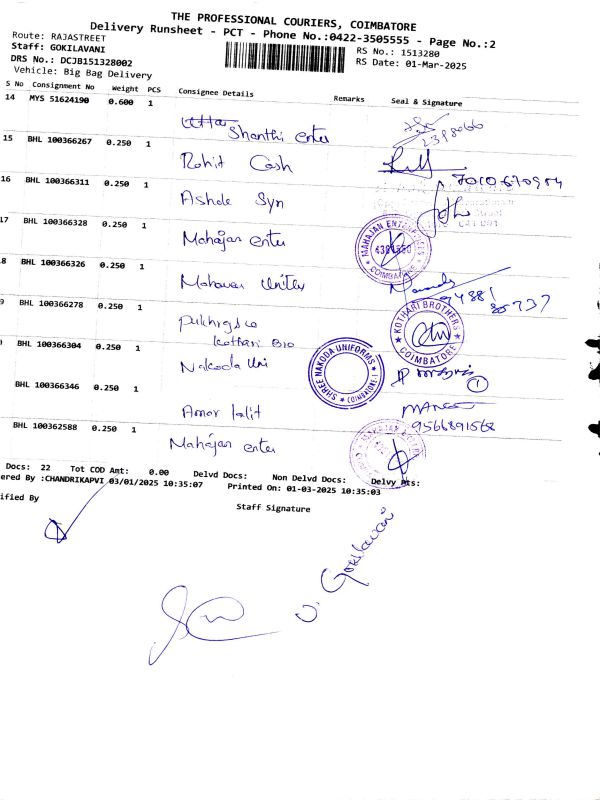 THE PROFESSIONAL COURIERS, COIMBATORE
Delivery Runsheet - PCT - Phone No.:0422-3505555 - Page No.:2
Route: RAJASTREET
Staff: GOKILAVANI
RS No.: 1513280
DRS No.: DCJB151328002
RS Date: 01-Mar-2025
Vehicle: Big Bag Delivery
S No Consignment No Weight PCS Consignee Details Remarks Seal & Signature
14 MYS 51624190 0.600 1
Shanthi enter
15 BHL 100366267 0.250 1
Rohit Cash
7010670984
16 BHL 100366311 0.250 1
Ashok Syn
17 BHL 100366328 0.250 1
Mahajan enter
MAHAJAN ENTERPRISES
COIMBATORE
8 BHL 100366326 0.250 1
94881
85737
9 BHL 100366278 0.250 1
Kothari Bro
KOTHARI BROTHERS
COIMBATORE
BHL 100366304 0.250 1
Nakoda Uni
SHREE NAKODA UNIFORMS
(COIMBATORE)
1
BHL 100366346 0.250 1
Amar lalit
9566891568
BHL 100362588 0.250 1
Mahajan enter
Docs: 22 Tot COD Amt: 0.00 Delvd Docs: Non Delvd Docs: Delvy Pts:
ered By :CHANDRIKAPVI 03/01/2025 10:35:07 Printed On: 01-03-2025 10:35:03
ified By
Staff Signature
V. Gokilavani